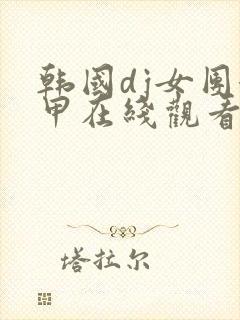 韩国dj女团
甲在线观看
塔拉尔